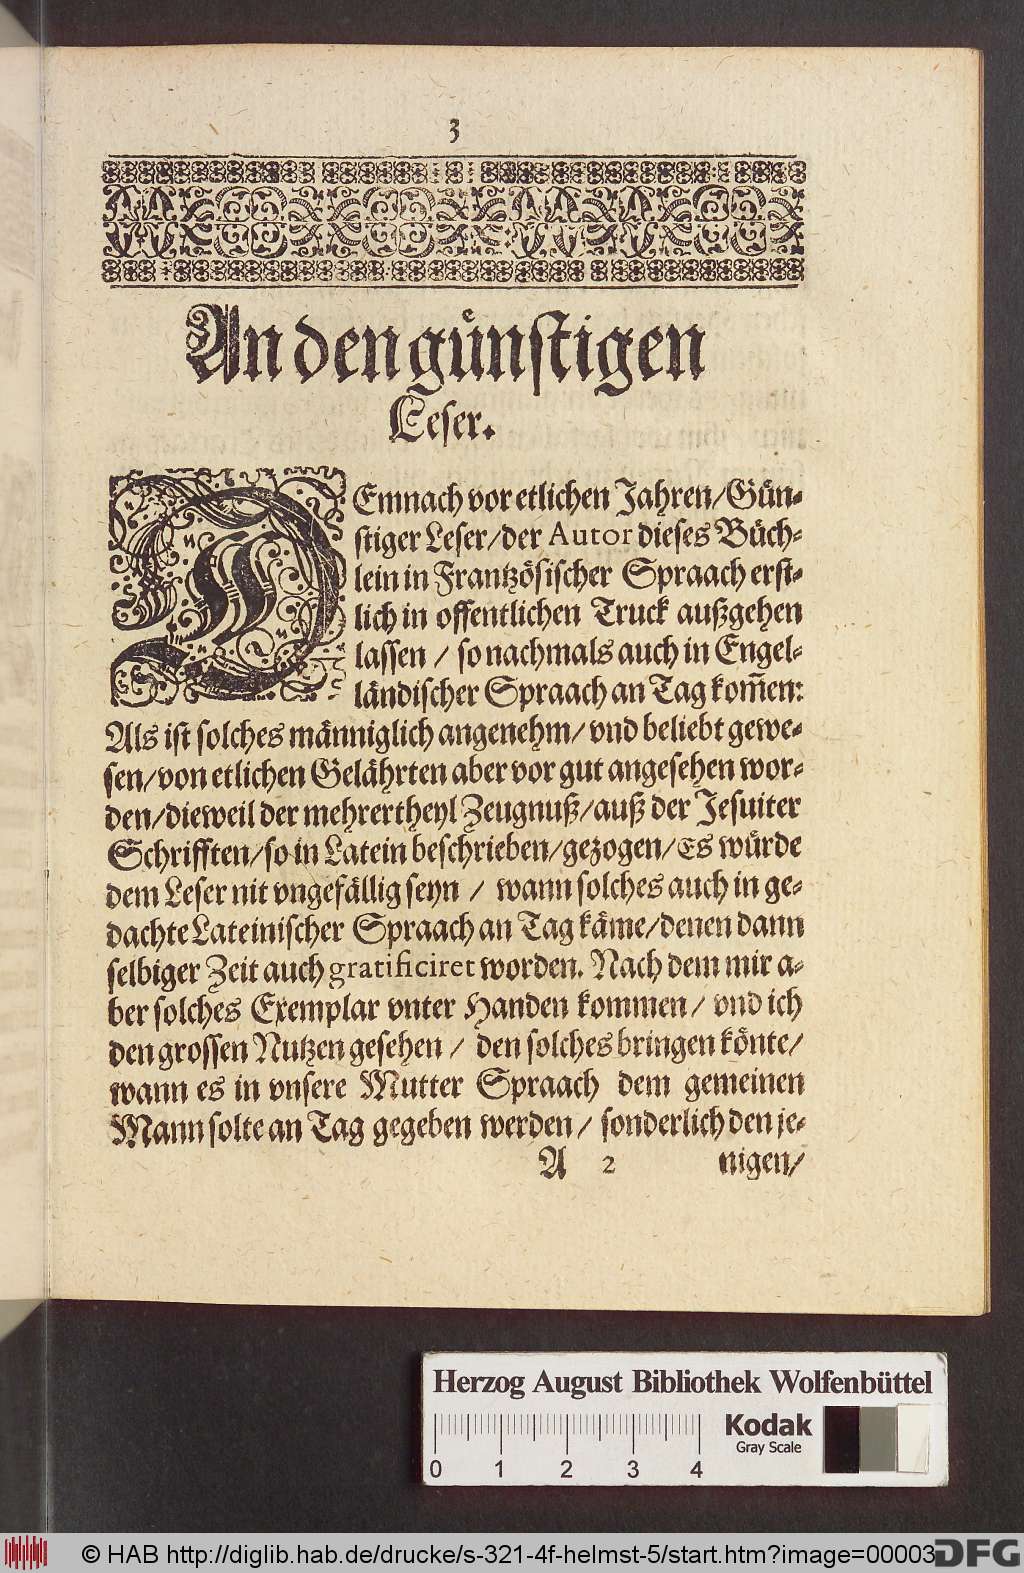 3
An den günstigen
Leser.
DEmnach vor etlichen Jahren/Gün-
stiger Leser/der Autor dieses Büch-
lein in Frantzösischer Spraach erst-
lich in offentlichen Truck außgehen
lassen / so nachmals auch in Engel-
ländischer Spraach an Tag kom̃en:
Als ist solches männiglich angenehm/ vnd beliebt gewe-
sen/von etlichen Gelährten aber vor gut angesehen wor-
den/dieweil der mehrertheyl Zeugnuß/auß der Jesuiter
Schrifften/so in Latein beschrieben/gezogen/Es würde
dem Leser nit vngefällig seyn / wann solches auch in ge-
dachte Lateinischer Spraach an Tag käme/denen dann
selbiger Zeit auch gratificiret worden. Nach dem mir a-
ber solches Exemplar vnter Handen kommen/ vnd ich
den grossen Nutzen gesehen / den solches bringen könte/
wann es in vnsere Mutter Spraach dem gemeinen
Mann solte an Tag gegeben werden / sonderlich den je-
A 2 nigen/
Herzog August Bibliothek Wolfenbüttel
Kodak
Gray Scale
0 1 2 3 4
© HAB http://diglib.hab.de/drucke/s-321-4f-helmst-5/start.htm?image=00003
DFG